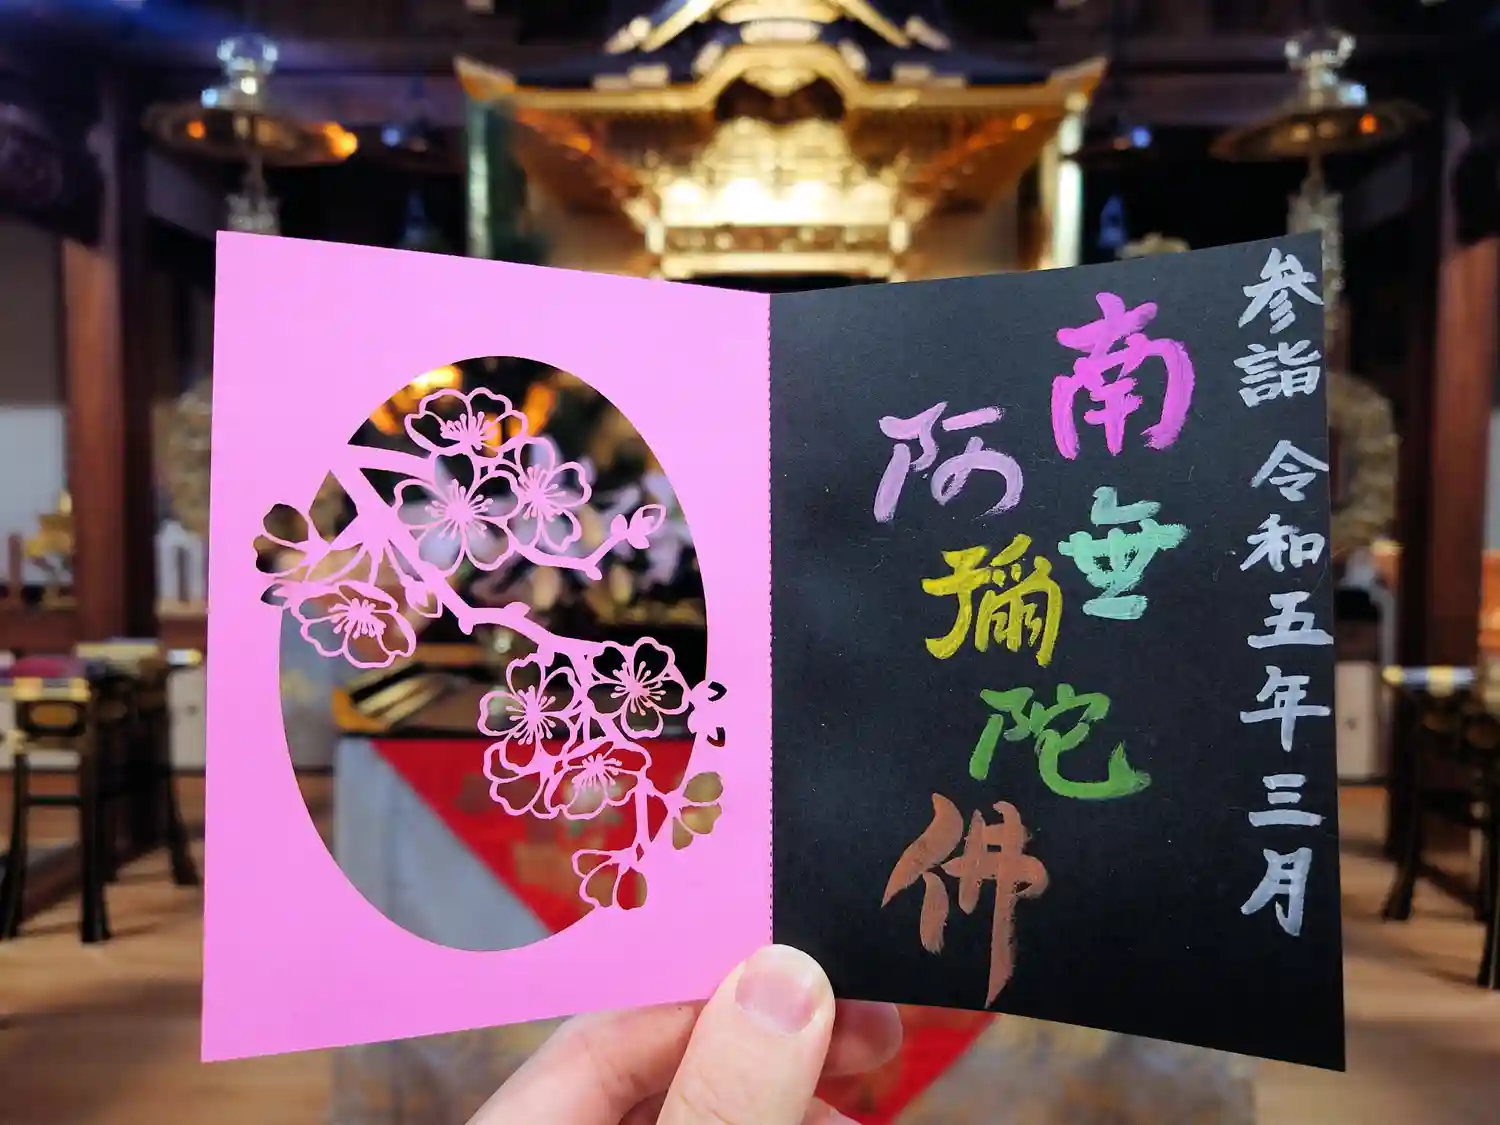 参詣 令和五年三月
南無
阿彌陀佛